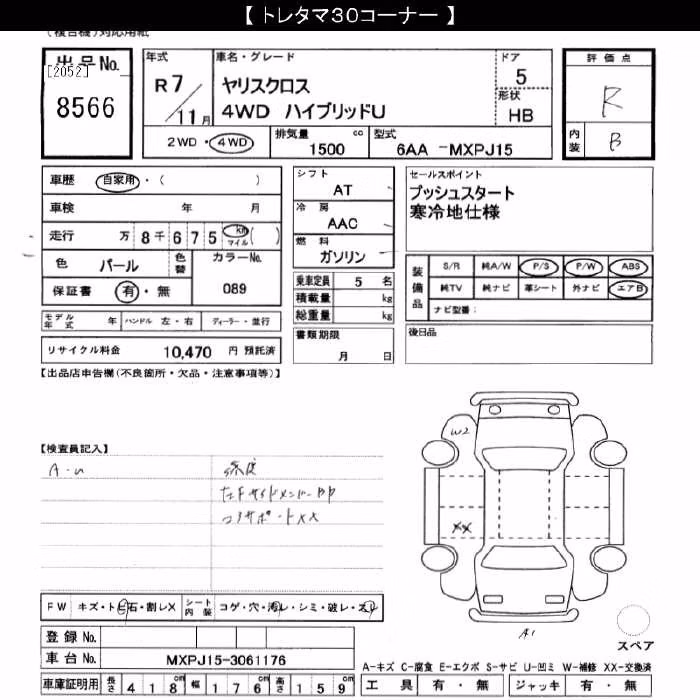 【 トレタマ30コーナー 】
(複合機)対応用紙
出品No. [2052] 8566
年式 R7/11月
車名・グレード ヤリスクロス 4WD ハイブリッドU
ドア 5
形状 HB
評価点 R
内装 B
2WD・4WD 排気量 1500 cc 型式 6AA -MXPJ15
車歴 自家用・( )
車検 年 月
走行 万 8千675 km マイル ( )
色 パール 色替 カラーNo. 089
保証書 有・無
モデル年式 年 ハンドル 左・右 ディーラー・並行
リサイクル料金 10,470 円 預託済
シフト AT
冷房 AAC
燃料 ガソリン
乗車定員 5 名
積載量 kg
総重量 kg
書類期限 月 日
セールスポイント
プッシュスタート
寒冷地仕様
装備品 S/R 純A/W P/S P/W ABS
純TV 純ナビ 革シート 外ナビ エアB
ナビ型番：
後日品
【出品店申告欄(不良箇所・欠品・注意事項等)】
【検査員記入】
A・U
左Fサイドメンバー
コアサポートXX
W2
XX
A1
FW キズ・トビ石・割レX シート内装 コゲ・穴・汚レ・シミ・破レ・スレ
登録No.
車台No. MXPJ15-3061176
車庫証明用 長さ 418 cm 幅 176 cm 高さ 159 cm
スペア
A-キズ C-腐食 E-エクボ S-サビ U-凹ミ W-補修 XX-交換済
工具 有・無 ジャッキ 有・無